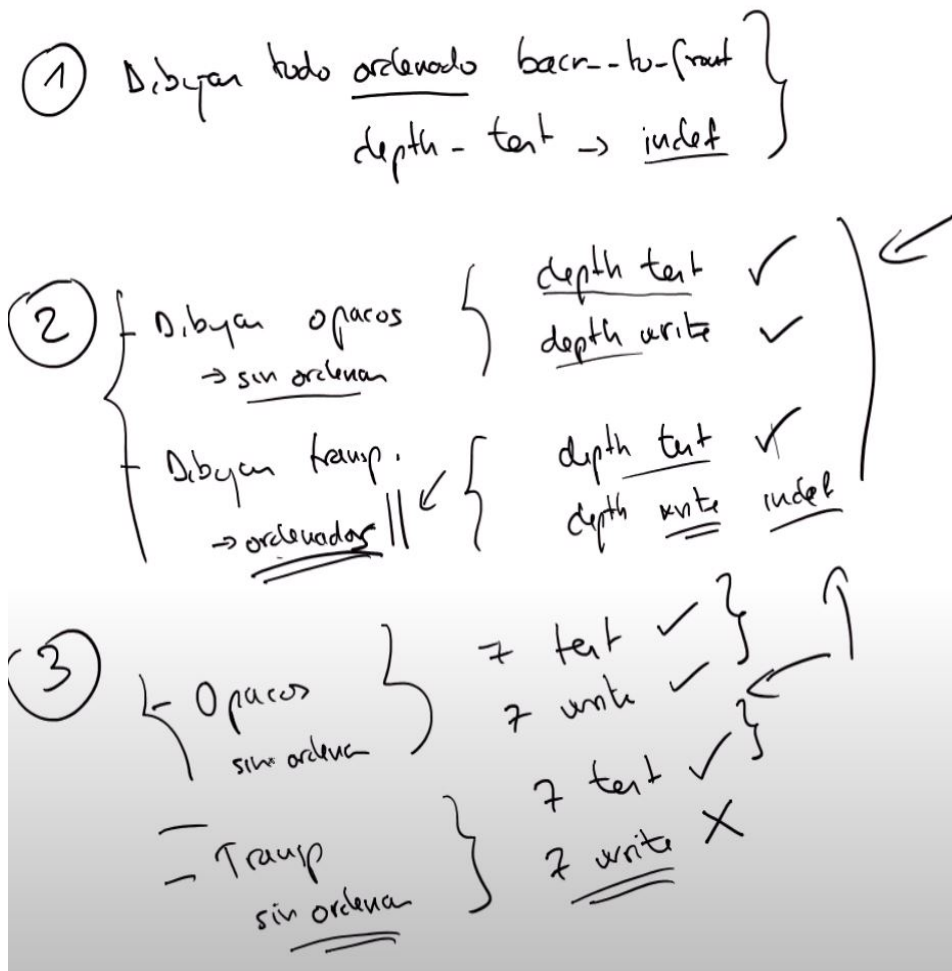 1 Dibujar todo ordenado back-to-front
depth-test → indef
2 - Dibujar opacos
→ sin ordenar
depth test ✓
depth write ✓
- Dibujar transp.
→ ordenados
depth test ✓
depth write indef
3 - Opacos
sin ordenar
z test ✓
z write ✓
- Transp
sin ordenar
z test ✓
z write X